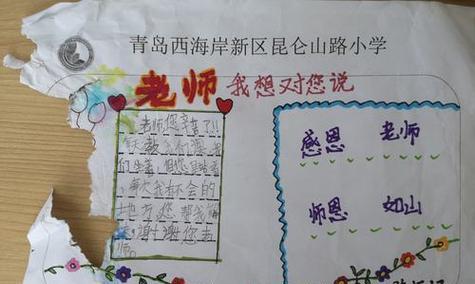 青岛西海岸新区昆仑山路小学
老师我想对您说
老师您辛苦了!!
每天教
们
每次我有不会的
地方您帮我
谢谢您老
师。
感恩 老师
师恩 如山